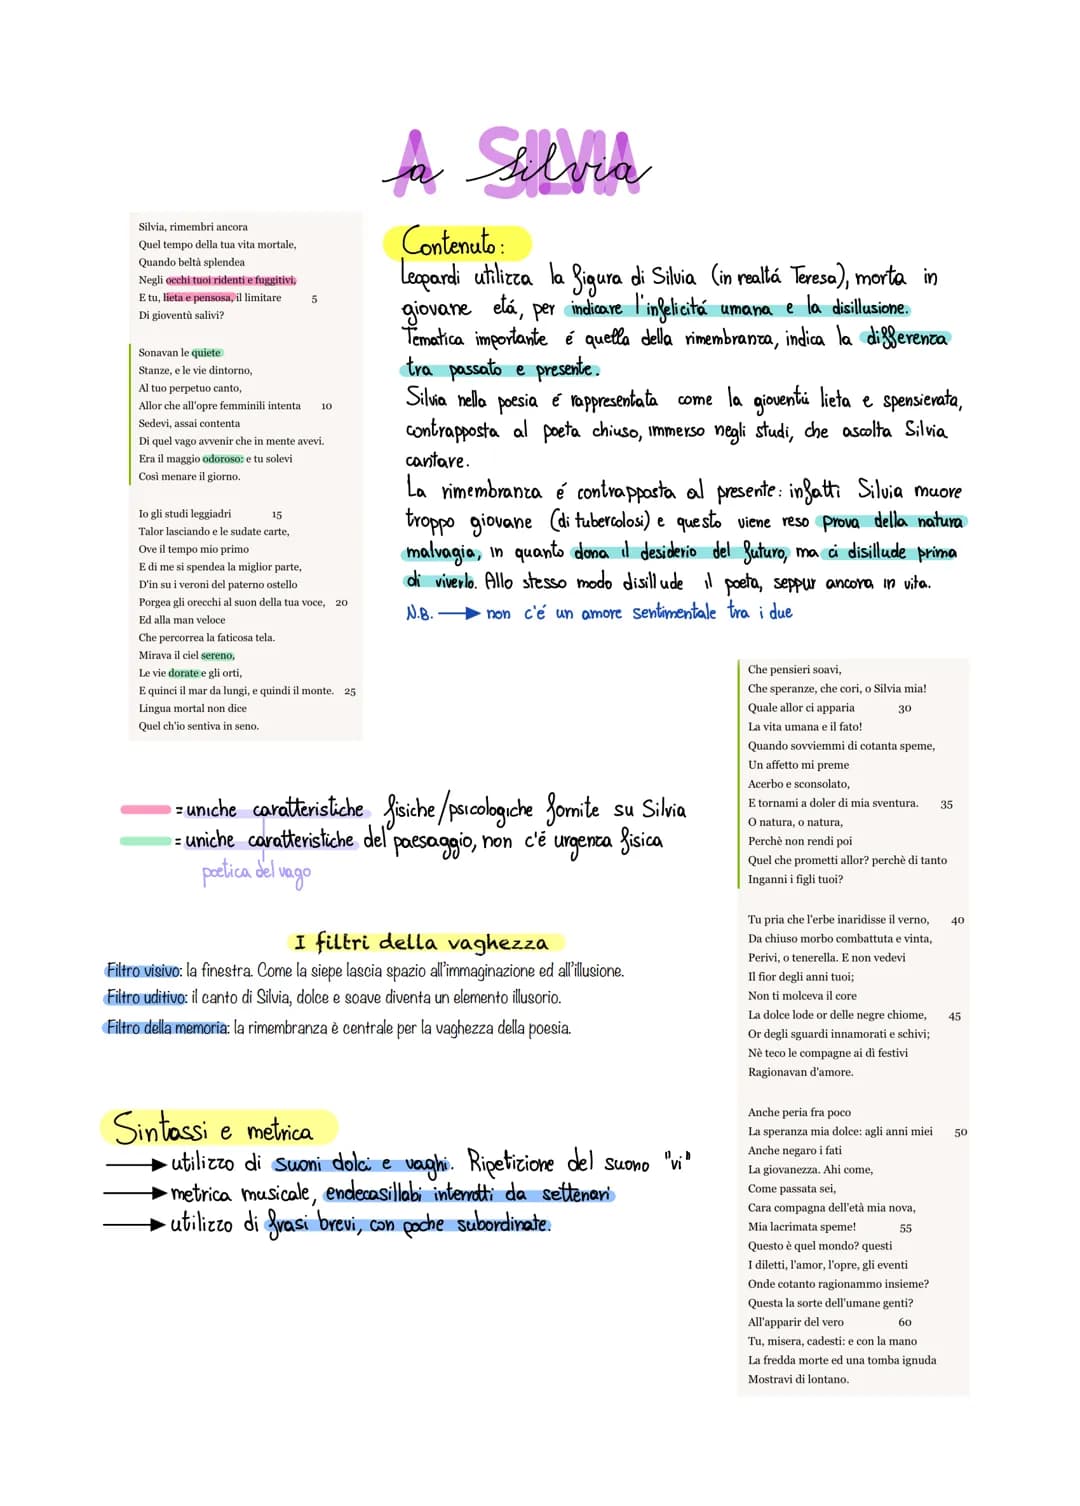 A SILVIA
a silvia
Silvia, rimembri ancora
Quel tempo della tua vita mortale,
Quando beltà splendea
Negli occhi tuoi ridenti e fuggitivi,
E tu, lieta e pensosa, il limitare 5
Di gioventù salivi?
Sonavan le quiete
Stanze, e le vie dintorno,
Al tuo perpetuo canto,
Allor che all'opre femminili intenta 10
Sedevi, assai contenta
Di quel vago avvenir che in mente avevi.
Era il maggio odoroso: e tu solevi
Così menare il giorno.
Io gli studi leggiadri 15
Talor lasciando e le sudate carte,
Ove il tempo mio primo
E di me si spendea la miglior parte,
D'in su i veroni del paterno ostello
Porgea gli orecchi al suon della tua voce, 20
Ed alla man veloce
Che percorrea la faticosa tela.
Mirava il ciel sereno,
Le vie dorate e gli orti,
E quinci il mar da lungi, e quindi il monte. 25
Lingua mortal non dice
Quel ch'io sentiva in seno.
Contenuto:
Leopardi utilizza la figura di Silvia (in realtá Teresa), morta in
giovane etá, per indicare l'infelicitá umana e la disillusione.
Tematica importante é quella della rimembranza, indica la differenza
tra passato e presente.
Silvia nella poesia é rappresentata come la gioventú lieta e spensierata,
contrapposta al poeta chiuso, immerso negli studi, che ascolta Silvia
cantare.
La rimembranza é contrapposta al presente: infatti Silvia muore
troppo giovane (di tubercolosi) e questo viene reso prova della natura
malvagia, in quanto dona il desiderio del futuro, ma ci disillude prima
di viverlo. Allo stesso modo disillude il poeta, seppur ancora in vita.
N.B. → non c'é un amore sentimentale tra i due
= uniche caratteristiche fisiche/psicologiche fornite su Silvia
= uniche caratteristiche del paesaggio, non c'é urgenza fisica
poetica del vago
I filtri della vaghezza
Filtro visivo: la finestra. Come la siepe lascia spazio all'immaginazione ed all'illusione.
Filtro uditivo: il canto di Silvia, dolce e soave diventa un elemento illusorio.
Filtro della memoria: la rimembranza è centrale per la vaghezza della poesia.
Sintassi e metrica
→ utilizzo di suoni dolci e vaghi. Ripetizione del suono "vi"
→ metrica musicale, endecasillabi interrotti da settenari
→ utilizzo di frasi brevi, con poche subordinate.
Che pensieri soavi,
Che speranze, che cori, o Silvia mia!
Quale allor ci apparia 30
La vita umana e il fato!
Quando sovviemmi di cotanta speme,
Un affetto mi preme
Acerbo e sconsolato,
E tornami a doler di mia sventura. 35
O natura, o natura,
Perchè non rendi poi
Quel che prometti allor? perchè di tanto
Inganni i figli tuoi?
Tu pria che l'erbe inaridisse il verno, 40
Da chiuso morbo combattuta e vinta,
Perivi, o tenerella. E non vedevi
Il fior degli anni tuoi;
Non ti molceva il core
La dolce lode or delle negre chiome, 45
Or degli sguardi innamorati e schivi;
Nè teco le compagne ai dì festivi
Ragionavan d'amore.
Anche peria fra poco
La speranza mia dolce: agli anni miei 50
Anche negaro i fati
La giovanezza. Ahi come,
Come passata sei,
Cara compagna dell'età mia nova,
Mia lacrimata speme! 55
Questo è quel mondo? questi
I diletti, l'amor, l'opre, gli eventi
Onde cotanto ragionammo insieme?
Questa la sorte dell'umane genti?
All'apparir del vero 60
Tu, misera, cadesti: e con la mano
La fredda morte ed una tomba ignuda
Mostravi di lontano.